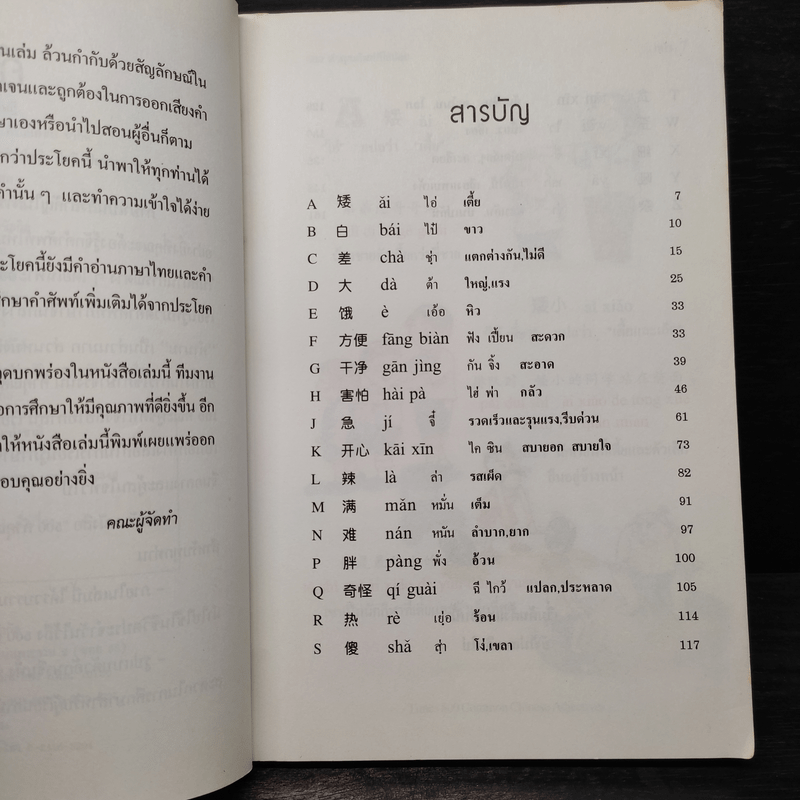 นเล่ม ล้วนกำกับด้วยสัญลักษณ์ใน
เจนและถูกต้องในการออกเสียงคำ
ษาเองหรือนำไปสอนผู้อื่นก็ตาม
กว่าประโยคนี้ นำพาให้ทุกท่านได้
คำนั้น ๆ และทำความเข้าใจได้ง่าย
ะโยคนี้ยังมีคำอ่านภาษาไทยและคำ
ศึกษาคำศัพท์เพิ่มเติมได้จากประโยค
ดบกพร่องในหนังสือเล่มนี้ ทีมงาน
่อการศึกษาให้มีคุณภาพที่ดียิ่งขึ้น อีก
ให้หนังสือเล่มนี้พิมพ์เผยแพร่ออก
อบคุณอย่างยิ่ง
คณะผู้จัดทำ
สารบัญ
A 矮 ǎi ไอ่ เตี้ย 7
B 白 bái ไป๋ ขาว 10
C 差 chà ช่า แตกต่างกัน,ไม่ดี 15
D 大 dà ต้า ใหญ่,แรง 25
E 饿 è เอ้อ หิว 33
F 方便 fāng biàn ฟัง เปี้ยน สะดวก 33
G 干净 gān jìng กัน จิ้ง สะอาด 39
H 害怕 hài pà ไฮ่ พ่า กลัว 46
J 急 jí จี๋ รวดเร็วและรุนแรง,รีบด่วน 61
K 开心 kāi xīn ไค ซิน สบายอก สบายใจ 73
L 辣 là ล่า รสเผ็ด 82
M 满 mǎn หมั่น เต็ม 91
N 难 nán หนัน ลำบาก,ยาก 97
P 胖 pàng พั่ง อ้วน 100
Q 奇怪 qí guài ฉี ไกว้ แปลก,ประหลาด 105
R 热 rè เย่อ ร้อน 114
S 傻 shǎ ส่า โง่,เขลา 117